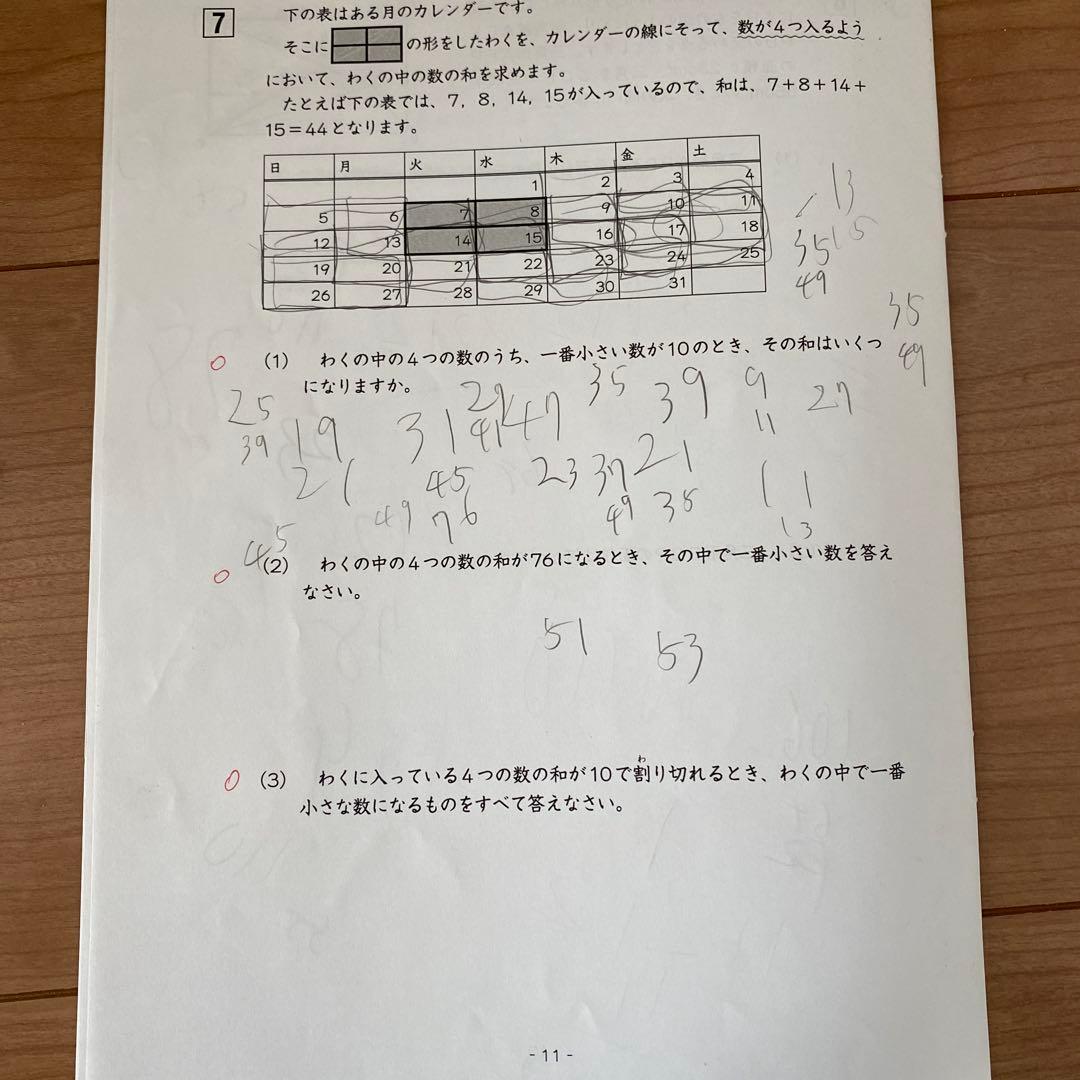 7 下の表はある月のカレンダーです。
そこに の形をしたわくを、カレンダーの線にそって、数が4つ入るよう
において、わくの中の数の和を求めます。
たとえば下の表では、7, 8, 14, 15が入っているので、和は、7+8+14+
15=44となります。
日 月 火 水 木 金 土
1 2 3 4
5 6 7 8 9 10 11
12 13 14 15 16 17 18
19 20 21 22 23 24 25
26 27 28 29 30 31
13
35 15
49
35
49
(1) わくの中の4つの数のうち、一番小さい数が10のとき、その和はいくつ
になりますか。
25 29 35 39 9 27
39 19 31 41 47 11
21 45 23 37 21 1 1
49 76 49 38 13
45
(2) わくの中の4つの数の和が76になるとき、その中で一番小さい数を答え
なさい。
51 53
(3) わくに入っている4つの数の和が10で割り切れるとき、わくの中で一番
わ
小さな数になるものをすべて答えなさい。
- 11 -